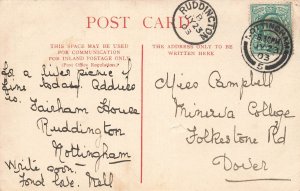 POST CARD
THIS SPACE MAY BE USED
FOR COMMUNICATION
FOR INLAND POSTAGE ONLY
(Post Office Regulation.)
THE ADDRESS ONLY TO BE
WRITTEN HERE
RUDDINGTON
NOTTINGHAM
03
So a lives picnic
fine today. Address
is, Fareham House
Ruddington
Nottingham
Write soon.
Fond love. Nell
Miss Campbell
Minerva College
Folkestone Rd
Dover